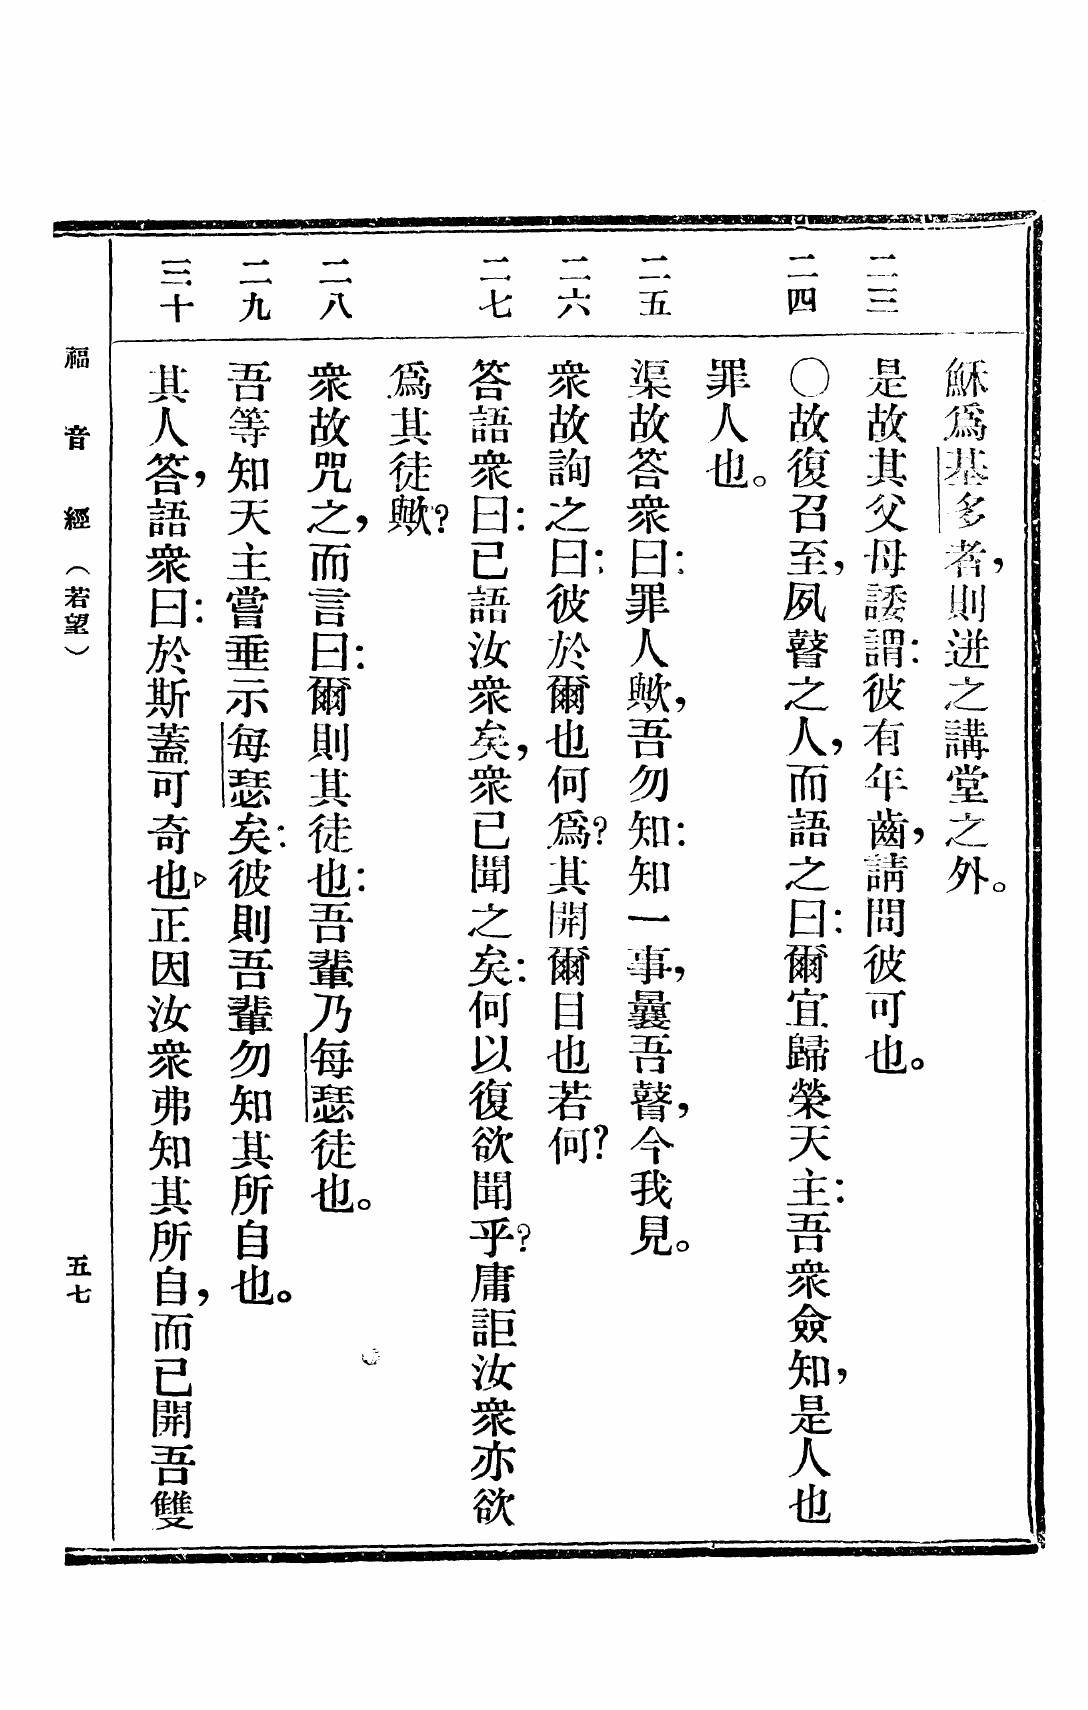 穌爲基多者，則迸之講堂之外。
二三
是故其父母諉謂：彼有年齒，請問彼可也。
二四
〇故復召至，夙瞽之人，而語之曰：爾宜歸榮天主：吾衆僉知，是人也
罪人也。
二五
渠故答衆曰：罪人歟，吾勿知：知一事，曩吾瞽，今我見。
二六
衆故詢之曰：彼於爾也何爲？其開爾目也若何？
二七
答語衆曰：已語汝衆矣，衆已聞之矣：何以復欲聞乎？庸詎汝衆亦欲
爲其徒歟？
二八
衆故咒之，而言曰：爾則其徒也：吾輩乃每瑟徒也。
二九
吾等知天主嘗垂示每瑟矣：彼則吾輩勿知其所自也。
三十
其人答，語衆曰：於斯蓋可奇也，正因汝衆弗知其所自，而已開吾雙
福音經（若望）
五七